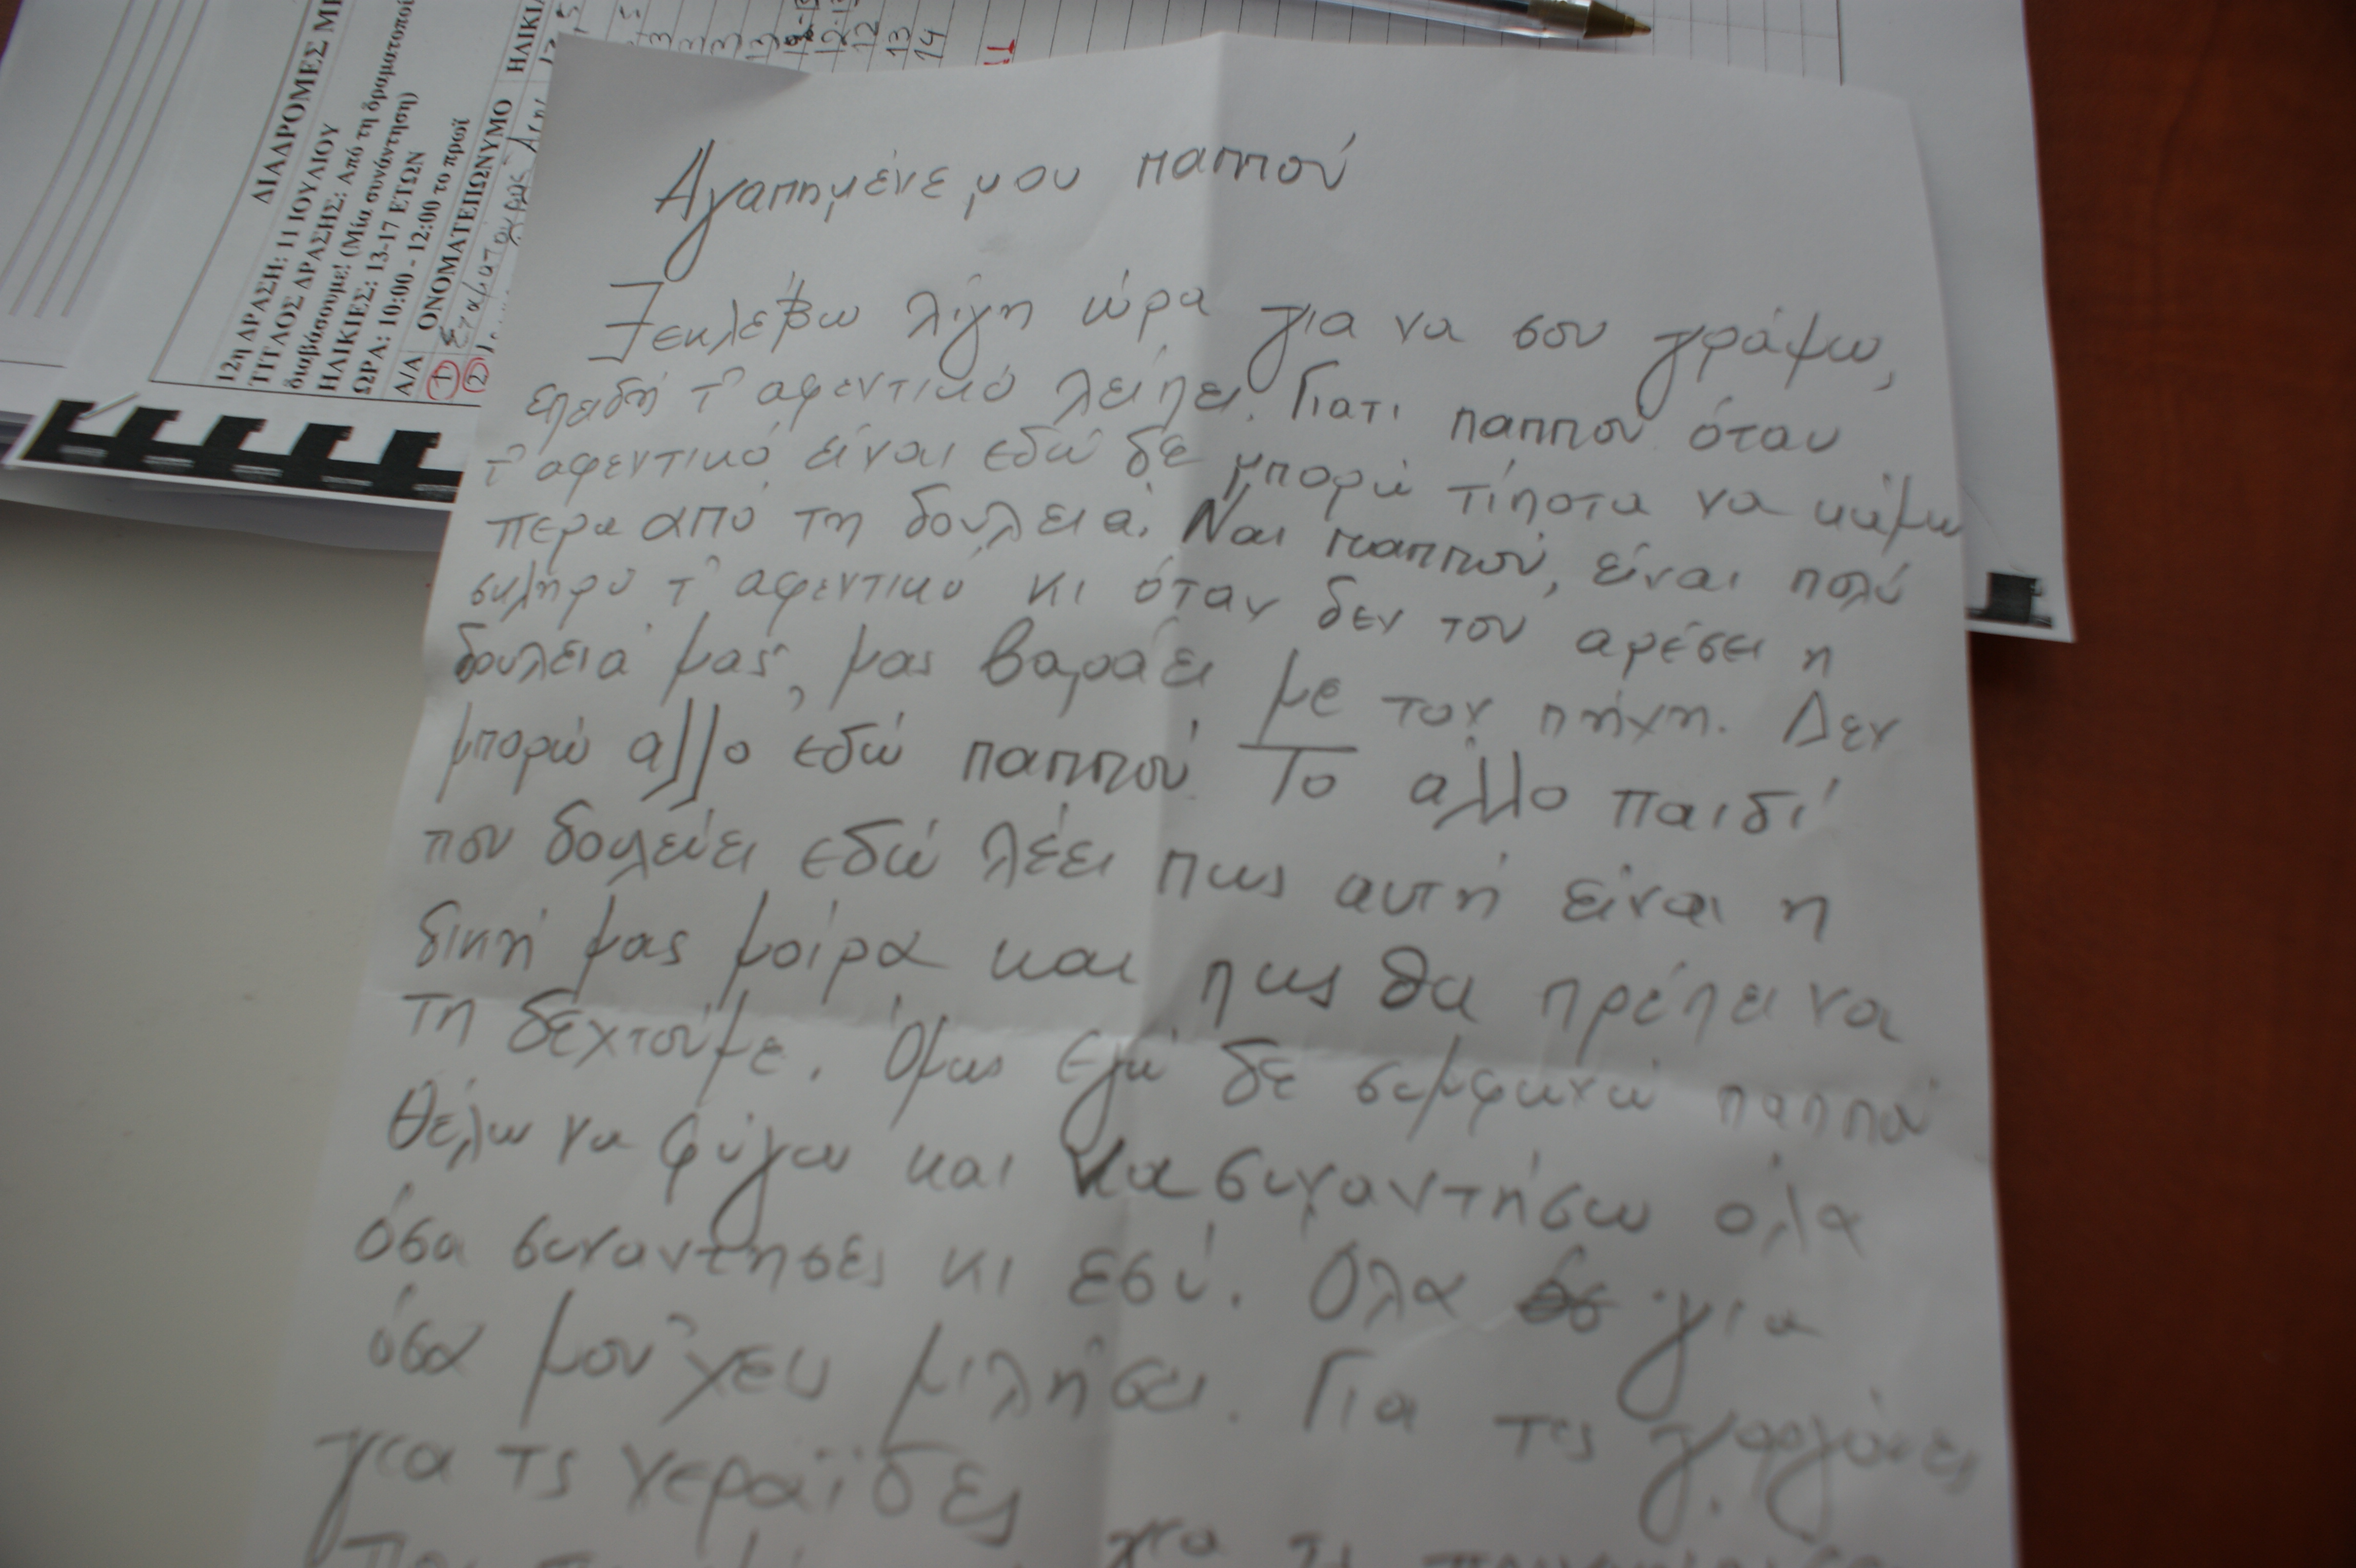 Αγαπημένε μου παππού
Ξεκλέβω λίγη ώρα για να σου γράψω,
επειδή τ' αφεντικό λείπει. Γιατι παππού όταν
τ' αφεντικό είναι εδώ δε μπορώ τίποτα να κάμω
περα από τη δουλειά. Ναι παππού, είναι πολύ
σκληρό τ' αφεντικό κι όταν δεν του αρέσει η
δουλειά μας, μας βαράει με τον πήχη. Δεν
μπορώ άλλο εδώ παππού. Το άλλο παιδί
που δουλεύει εδώ λέει πως αυτή είναι η
δική μας μοίρα και πως θα πρέπει να
τη δεχτούμε. Όμως εγώ δε συμφωνώ παππού
Θέλω να φύγω και να συναντήσω όλα
όσα συναντησες κι εσύ. Όλα για
όσα μου 'χεις μιλήσει. Για τις γοργόνες
για τς νεραϊδες
για τς
ΔΙΑΔΡΟΜΕΣ ΜΕ
12η ΔΡΑΣΗ: 11 ΙΟΥΛΙΟΥ
ΤΙΤΛΟΣ ΔΡΑΣΗΣ: Από τη δραματοποί
διαβάσουμε! (Μία συνάντηση)
ΗΛΙΚΙΕΣ: 13-17 ΕΤΩΝ
ΩΡΑ: 10:00 - 12:00 το πρωϊ
Α/Α ΟΝΟΜΑΤΕΠΩΝΥΜΟ ΗΛΙΚΙ
1
2
12
13
14